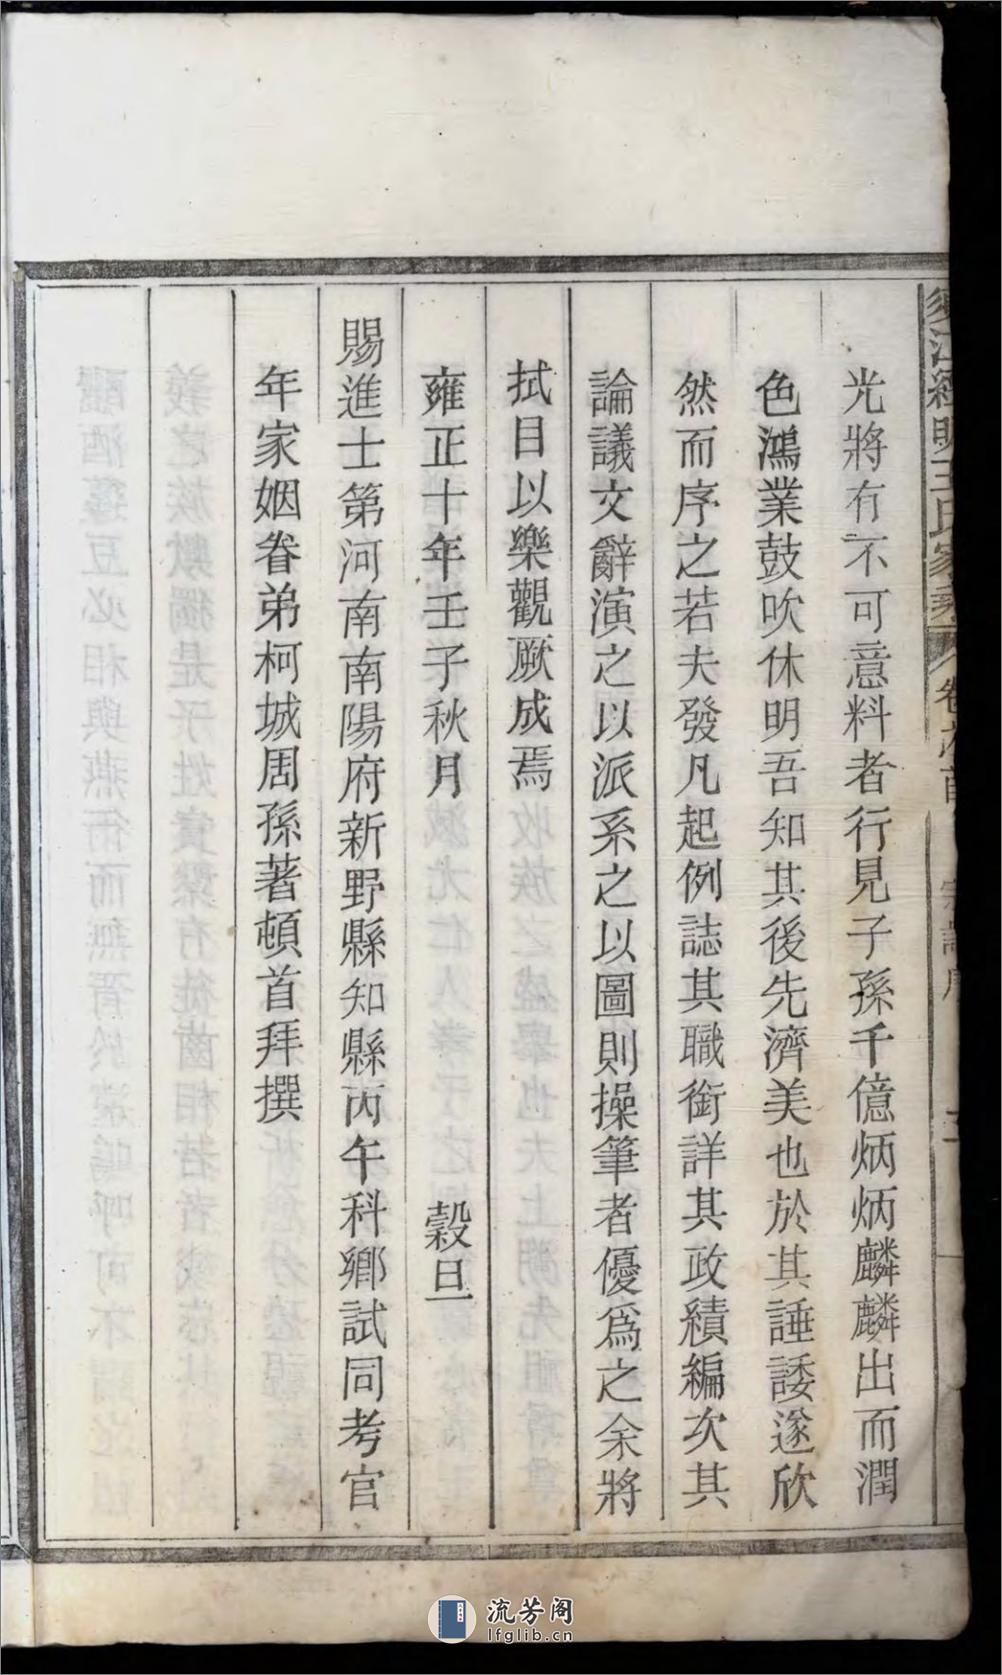 光將有不可意料者行見子孫千億炳炳麟麟出而潤
色鴻業鼓吹休明吾知其後先濟美也於其諈諉遂欣
然而序之若夫發凡起例誌其職銜詳其政績編次其
論議文辭演之以派系之以圖則操筆者優爲之余將
拭目以樂觀厥成焉
雍正十年壬子秋月 穀旦
賜進士第河南南陽府新野縣知縣丙午科鄉試同考官
年家姻眷弟柯城周孫著頓首拜撰
流芳阁
lfglib.cn